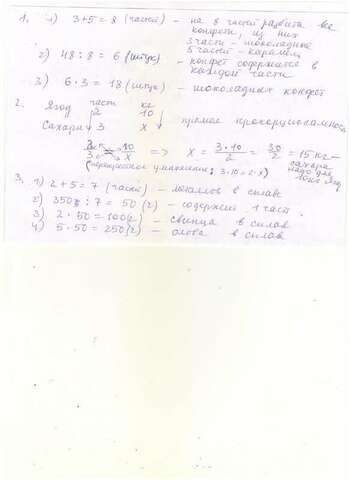 1. 1) 3+5=8 (частей) – на 8 частей разбиты все
конфеты, из них
3 части – шоколадные
5 частей – карамель
2) 48:8=6 (штук) – конфет содержится в
каждой части
3) 6·3=18 (штук) – шоколадных конфет
2. част кг
Ягод 2 10
Сахара 3 x прямая пропорциональность
10/x => x = 3·10/2 = 30/2 = 15 кг –
сахара
надо для
10 кг ягод
(перекрестное умножение: 3·10=2·x)
3. 1) 2+5=7 (частей) – металлов в сплаве
2) 350:7=50 (г) – содержит 1 част.
3) 2·50=100(г) – свинца в сплав
4) 5·50=250(г) – олова в сплав